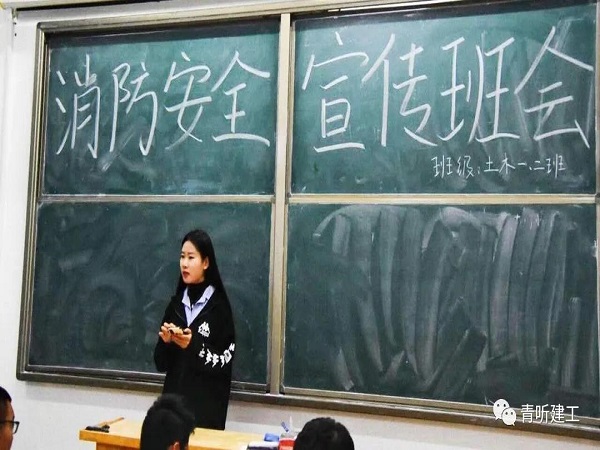 消防安全 宣传班会
班级:土木一、二班
青昕建工